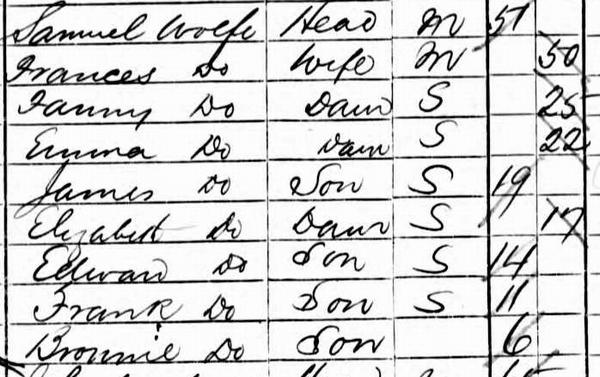 Samuel Wolfe Head M 51
Frances Do Wife M 50
Fanny Do Daur S 25
Emma Do Daur S 22
James Do Son S 19
Elizabeth Do Daur S 17
Edward Do Son S 14
Frank Do Son S 11
Brownie Do Son 6